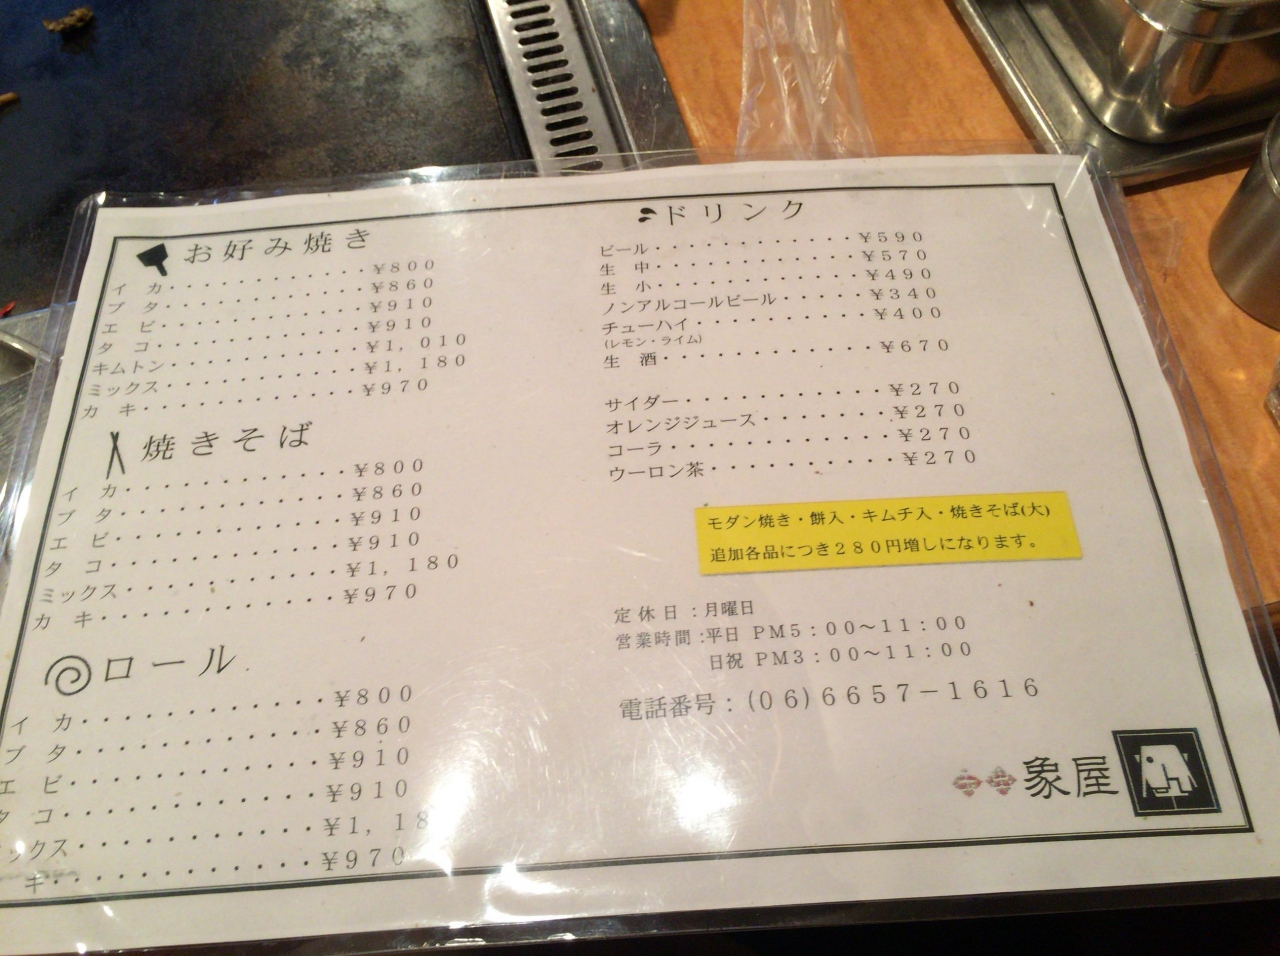 お好み焼き
イカ・・・・・・・・・・・・¥800
ブタ・・・・・・・・・・・・¥860
エビ・・・・・・・・・・・・¥910
タコ・・・・・・・・・・・・¥910
キムトン・・・・・・・・・・・・¥1,010
ミックス・・・・・・・・・・・・¥1,180
カキ・・・・・・・・・・・・¥970
焼きそば
イカ・・・・・・・・・・・・¥800
ブタ・・・・・・・・・・・・¥860
エビ・・・・・・・・・・・・¥910
タコ・・・・・・・・・・・・¥910
ミックス・・・・・・・・・・・・¥1,180
カキ・・・・・・・・・・・・¥970
ロール
イカ・・・・・・・・・・・・¥800
ブタ・・・・・・・・・・・・¥860
エビ・・・・・・・・・・・・¥910
タコ・・・・・・・・・・・・¥910
ックス・・・・・・・・・・・・¥1,18
キ・・・・・・・・・・・・¥970
ドリンク
ビール・・・・・・・・・・・・¥590
生中・・・・・・・・・・・・¥570
生小・・・・・・・・・・・・¥490
ノンアルコールビール・・・・・¥340
チューハイ・・・・・・・・・・¥400
(レモン・ライム)
生酒・・・・・・・・・・・・¥670
サイダー・・・・・・・・・・・¥270
オレンジジュース・・・・・・・¥270
コーラ・・・・・・・・・・・・¥270
ウーロン茶・・・・・・・・・・¥270
モダン焼き・餅入・キムチ入・焼きそば(大)
追加各品につき280円増しになります。
定休日:月曜日
営業時間:平日 PM5:00〜11:00
日祝 PM3:00〜11:00
電話番号:(06)6657-1616
象屋